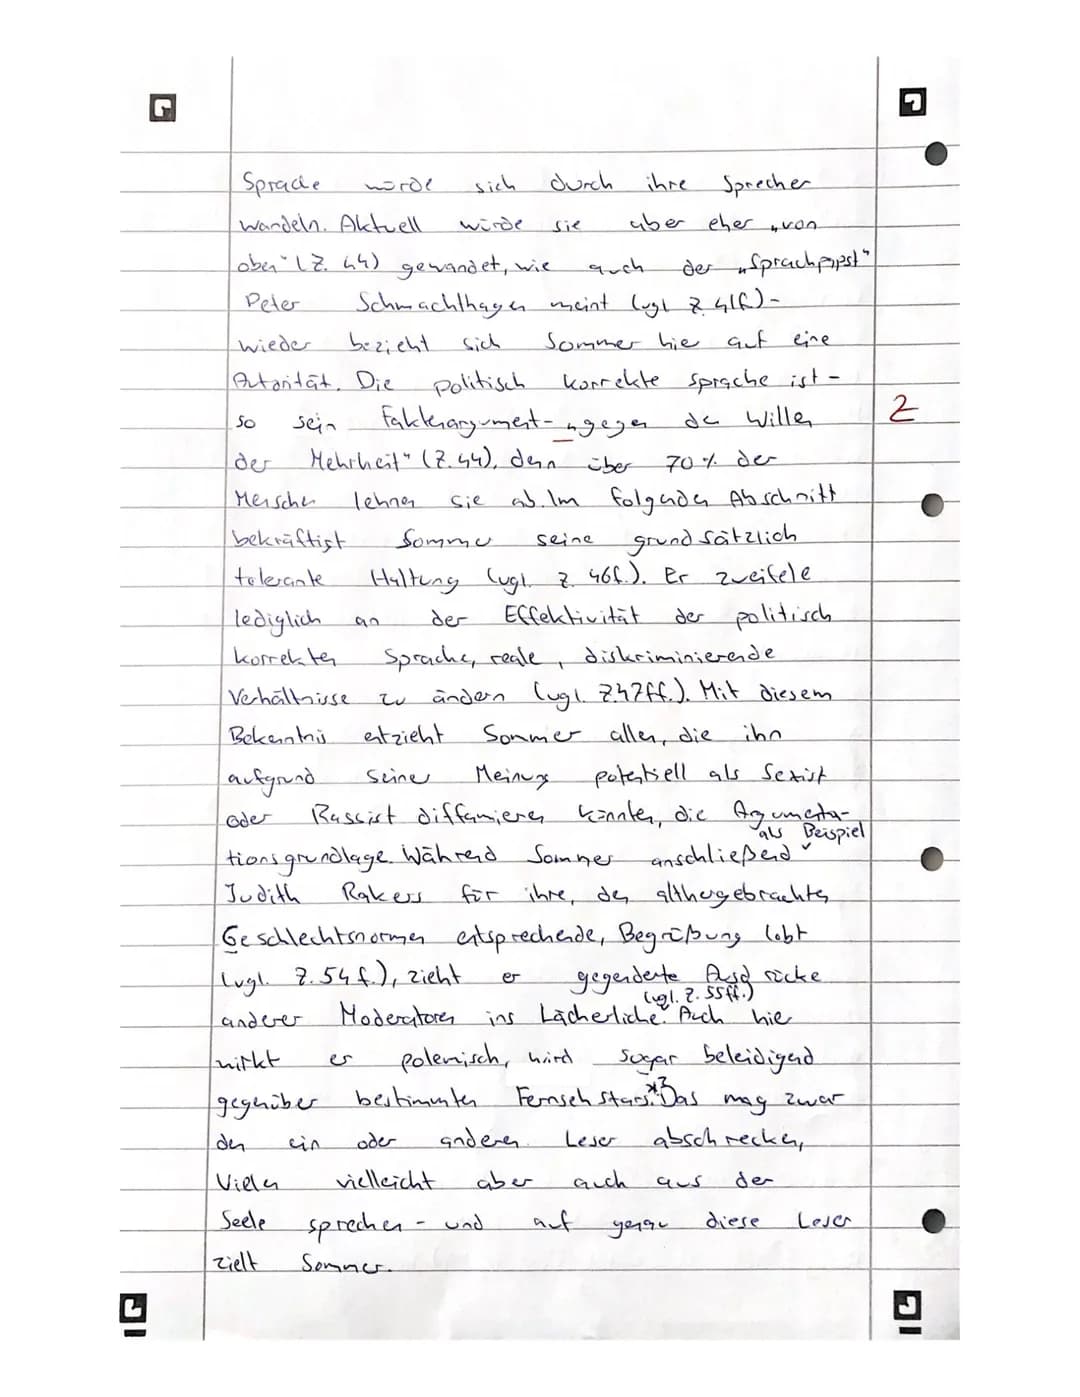 Sprache würde sich durch ihre Sprecher
wandeln. Aktuell würde sie aber eher „von
oben“ (Z. 44) gewandet, wie auch der „Sprachpapst“
Peter Schmachthagen meint (vgl Z. 41f.) -
wieder bezieht sich Sommer hie auf eine
Autorität. Die politisch korrekte Sprache ist -
so sein Faktenargument - „gegen den Willen
der Mehrheit“ (Z. 44), denn über 70 % der
Menschen lehnen sie ab. Im folgenden Abschnitt
bekräftigt Sommer seine grundsätzlich
tolerante Haltung (vgl. Z. 46f.). Er zweifele
lediglich an der Effektivität der politisch
korrekten Sprache, reale, diskriminierende
Verhältnisse zu ändern (vgl. Z.47ff.). Mit diesem
Bekenntnis entzieht Sommer allen, die ihn
aufgrund seiner Meinung potentiell als Sexist
oder Rassist diffamieren könnten, die Argumenta-
tionsgrundlage. Während Sommer anschließend als Beispiel
Judith Rakers für ihre, den althergebrachten
Geschlechtsnormen entsprechende, Begrüßung lobt
(vgl. Z. 54 f.), zieht er gegenderte Ausdrücke
anderer Moderatoren ins Lächerliche (vgl. Z. 55ff.). Auch hie
wirkt er polemisch, wird sogar beleidigend
gegenüber bestimmten Fernsehstars.*3 Das mag zwar
den ein oder anderen Leser abschrecken,
Vielen vielleicht aber auch aus der
Seele sprechen - und auf genau diese Leser
zielt Sommer.
2